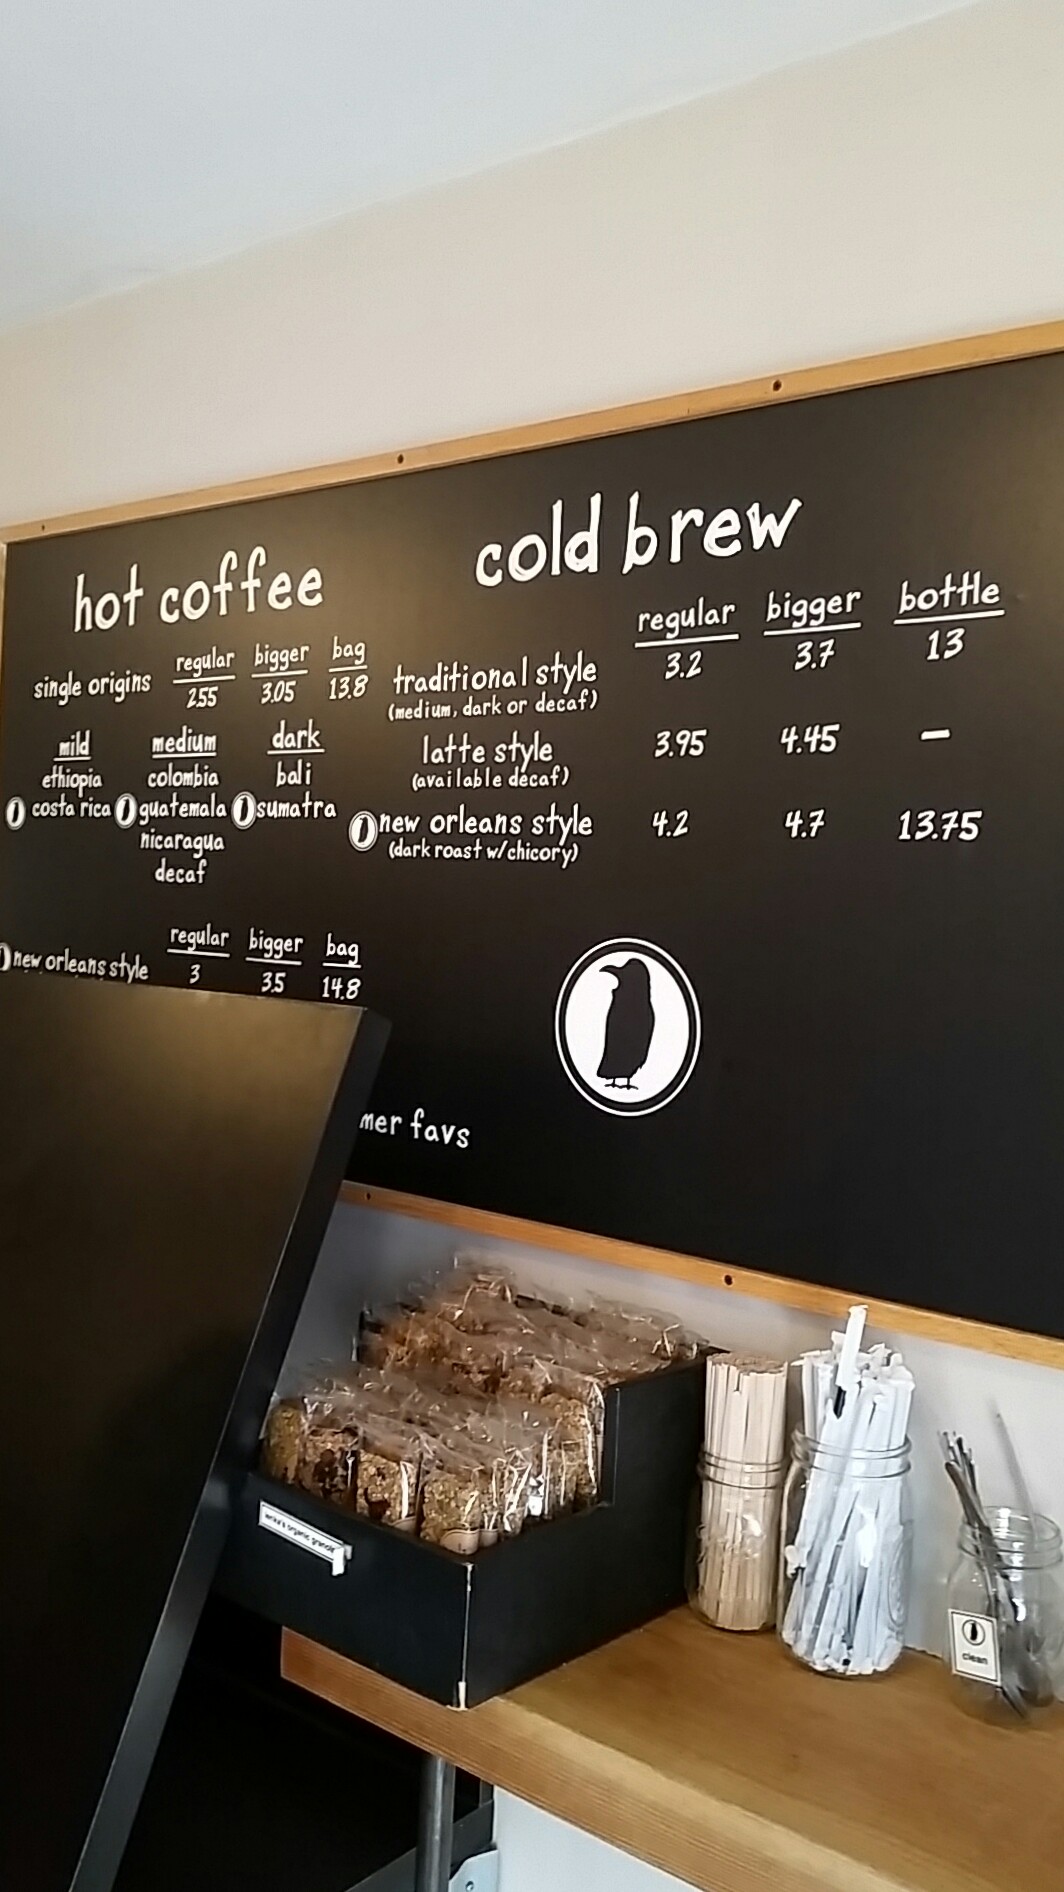 hot coffee
regular bigger bag
single origins 2.55 3.05 13.8
mild medium dark
ethiopia colombia bali
costa rica guatemala sumatra
nicaragua
decaf
regular bigger bag
new orleans style 3 3.5 14.8
mer favs
cold brew
regular bigger bottle
traditional style 3.2 3.7 13
(medium, dark or decaf)
latte style 3.95 4.45 —
(available decaf)
new orleans style 4.2 4.7 13.75
(dark roast w/chicory)
organic granola
clean